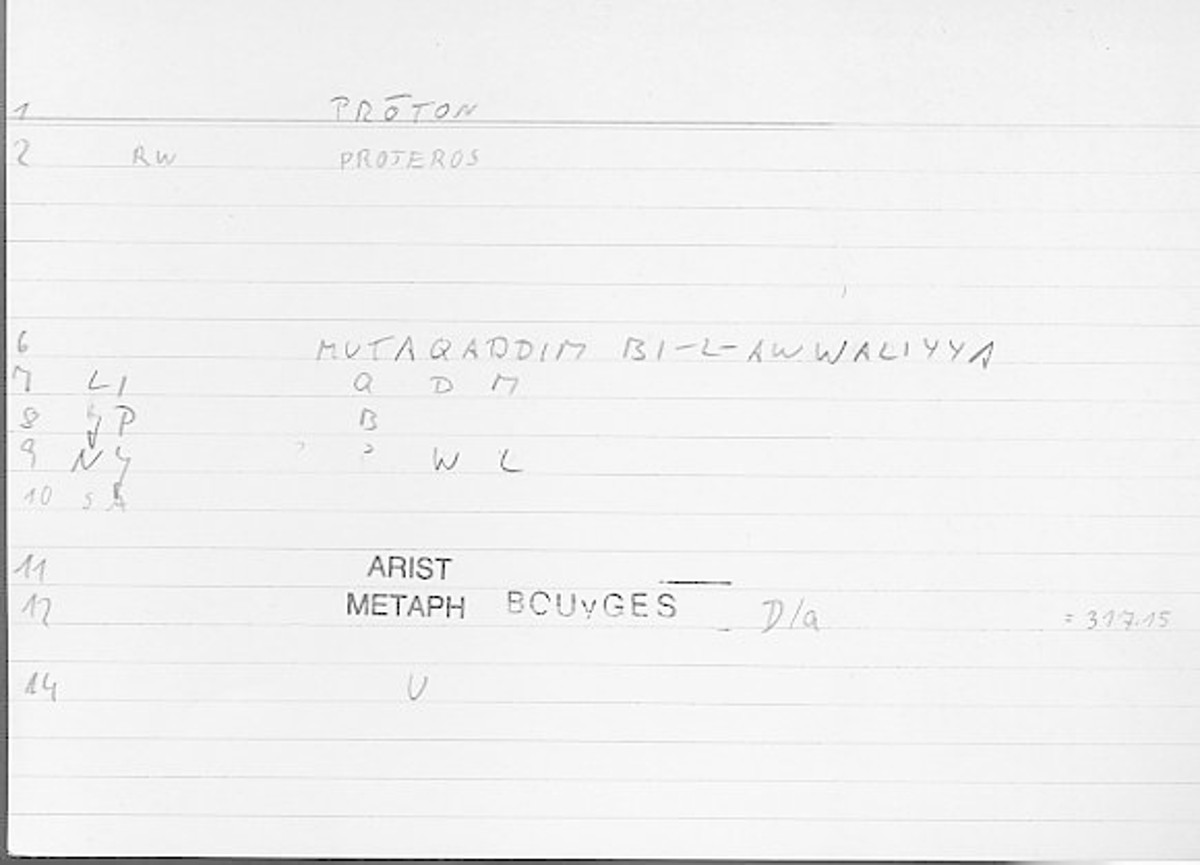 1 PRŌTON
2 RW PROTEROS
6 MUTAQADDIM BI-L-AWWALIYYA
7 LI Q D M
8 P B
9 NY ʾ W L
10 SA
11 ARIST
12 METAPH BOUYGES D/a = 317.15
14 U